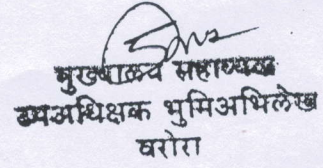 मुख्यालय सहाय्यक
उपअधिक्षक भुमिअभिलेख
वरोरा